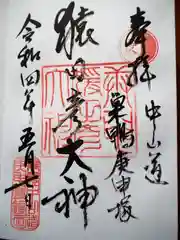 奉拝
中山道
巣鴨庚申塚
猿田彦大神
令和四年五月一日